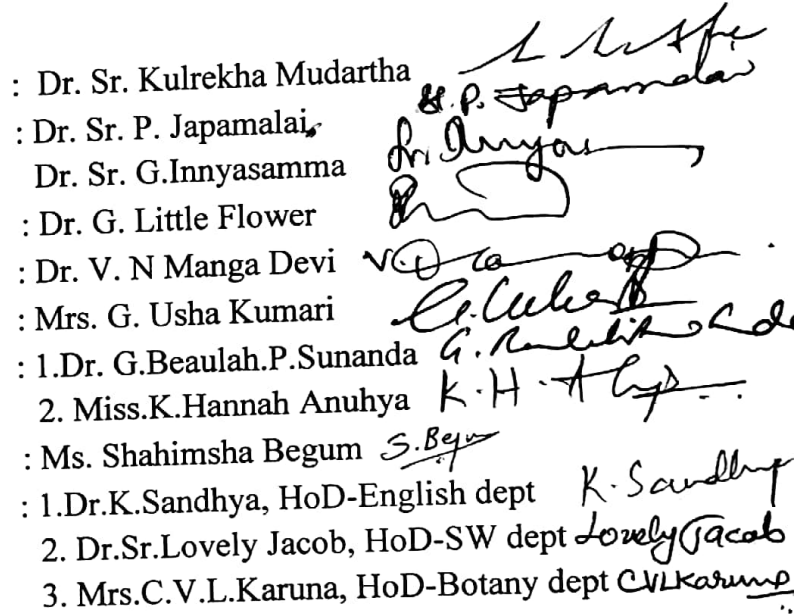 : Dr. Sr. Kulrekha Mudartha
: Dr. Sr. P. Japamalai, Sr. P. Japamalai
Dr. Sr. G.Innyasamma
: Dr. G. Little Flower
: Dr. V. N Manga Devi
: Mrs. G. Usha Kumari
: 1.Dr. G.Beaulah.P.Sunanda
2. Miss.K.Hannah Anuhya K. H.
: Ms. Shahimsha Begum S.Begum
: 1.Dr.K.Sandhya, HoD-English dept K. Sandhya
2. Dr.Sr.Lovely Jacob, HoD-SW dept Lovely Jacob
3. Mrs.C.V.L.Karuna, HoD-Botany dept CVLKaruna